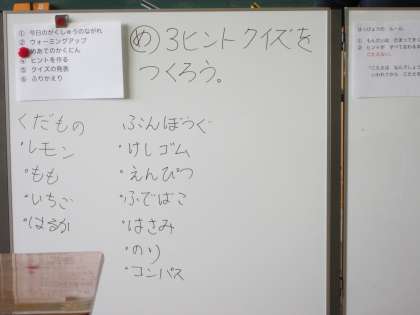 ① 今日のがくしゅうのながれ
② ウォーミングアップ
③ めあてのかくにん
④ ヒントを作る
⑤ クイズの発表
⑥ ふりかえり
め 3ヒントクイズを
つくろう。
くだもの
・レモン
・もも
・いちご
・はるか
ぶんぼうぐ
・けしゴム
・えんぴつ
・ふでばこ
・はさみ
・のり
・コンパス